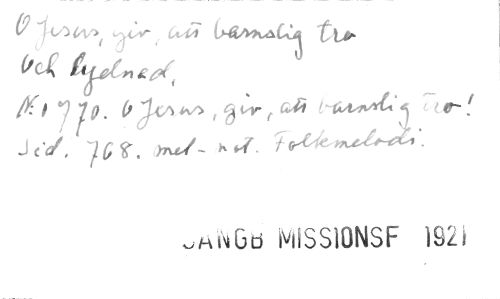 O Jesus, giv, att barnslig tro
Och lydnad,
N:o 770. O Jesus, giv, att barnslig tro!
Sid. 768. mel-not. Folkmelodi.
SANGB MISSIONSF 1921